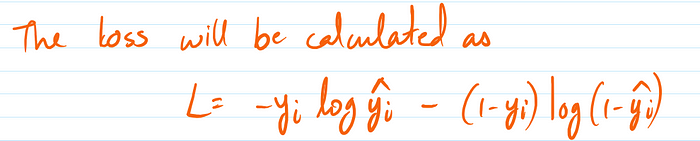 The loss will be calculated as
L = -yᵢ log ŷᵢ - (1-yᵢ) log (1-ŷᵢ)